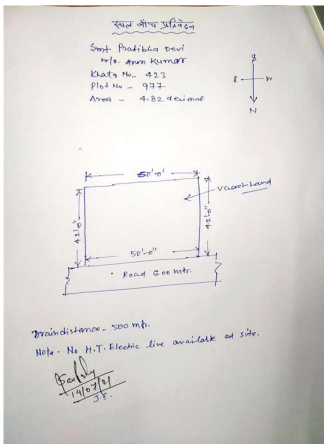 स्थल जाँच प्रतिवेदन
Smt Pratibha Devi
W/o. Arun Kumar
Khata No. - 423
Plot No - 977
Area - 4.82 decimal
S
E W
N
50'-0"
Vacant Land
42'-0"
42'-0"
50'-0"
Road 6.00 mtr.
Drain distance - 500 mtr.
Note. No H.T. Electric line available at site.
14/07/21
J.E.